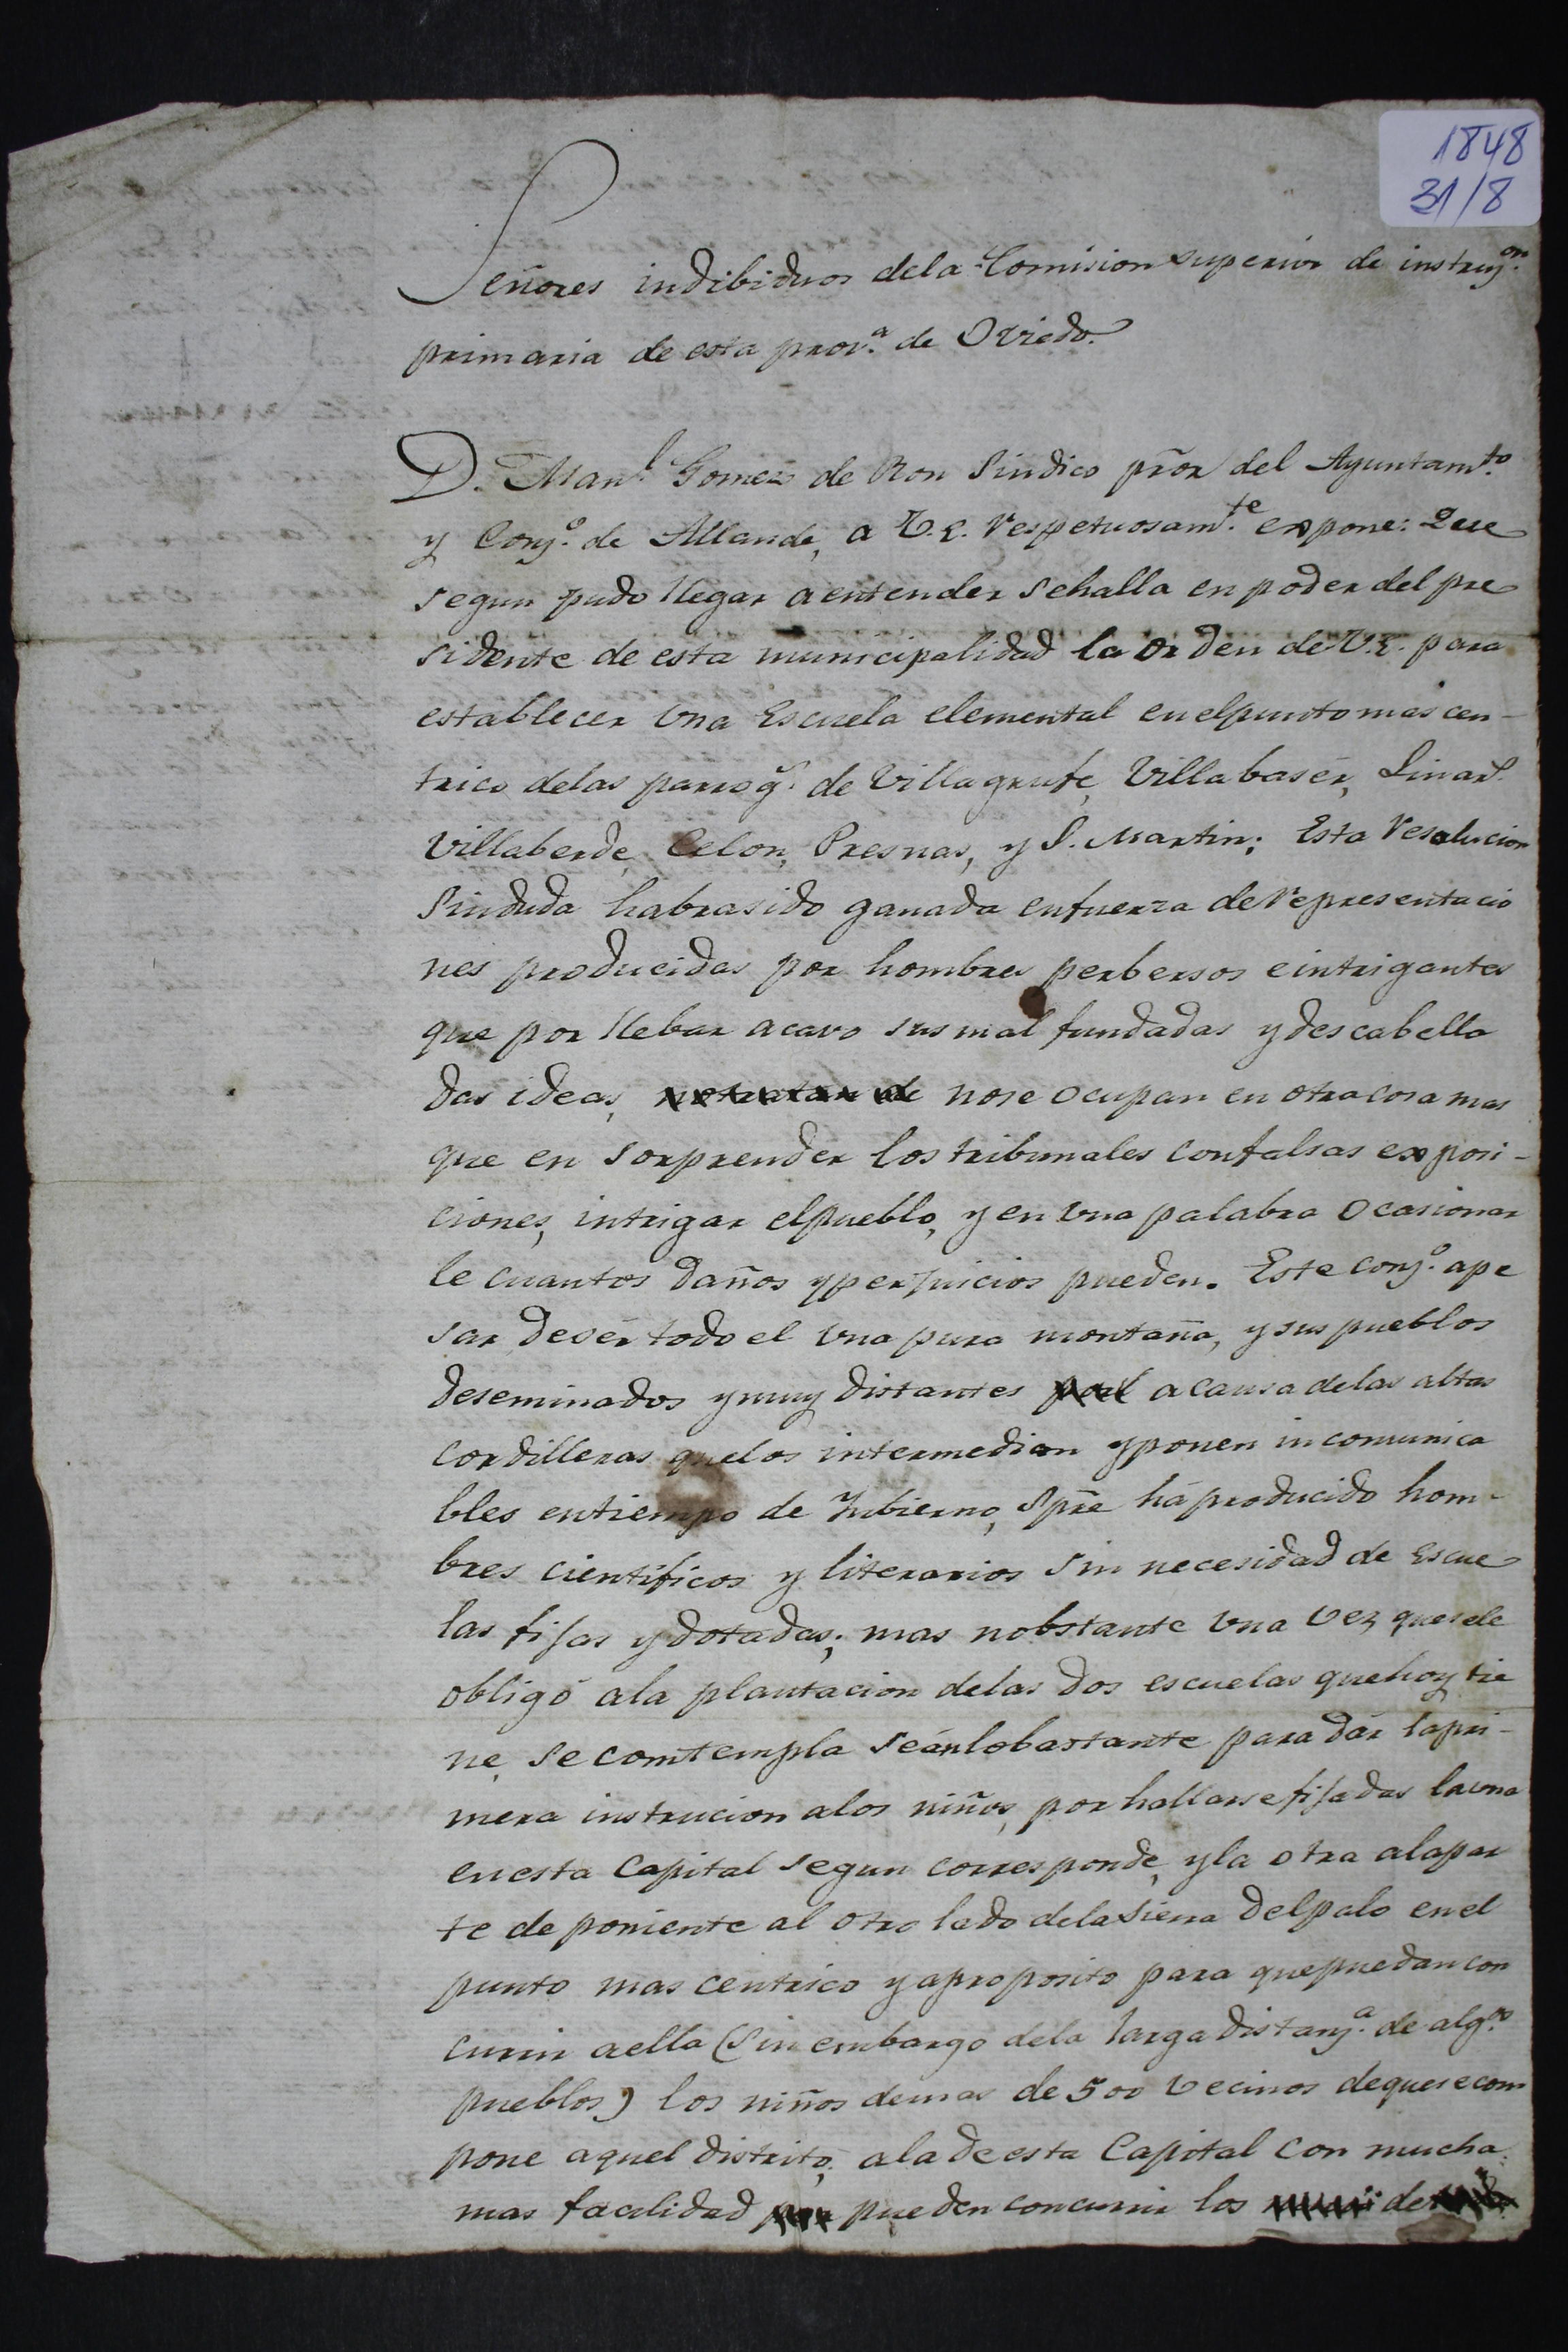 1848
31/8
Señores indibiduos dela Comision superior de instruj.on
primaria de esta prov.a de Oviedo.
D. Man.l Gomez de Ron Sindico prõr del Ayuntam.to
y Conj.o de Allande, a V.E. respetuosam.te expone: Que
segun pudo llegar aentender sehalla en poder del pre
sidente de esta municipalidad la orden de V.E. para
establecer una Escuela elemental enelpunto mas cen-
trico delas parroq.s de Villagrufe, Villabasér, Linar.s
Villaberde, Celon, Presnas, y S. Martin; Esta resolucion
sinduda habrasido ganada enfuerza derepresentacio
nes producidas por hombres perbersos eintrigantes
que por llebar acavo susmal fundadas ydescabella
das ideas, notratan de nose ocupan en otracosa mas
que en sorprender lostribunales confalsas exposi-
ciones, intrigar elpueblo, y en una palabra ocasionar
le cuantos daños yperjuicios pueden. Este conj.o ape
sar desér todo el una pura montaña, ysus pueblos
deseminados ymuy distantes por acausa delas altas
cordilleras quelos intermedian yponen incomunica
bles entiempo de Inbierno, spr̃e há producido hom-
bres cientificos y literarios sin necesidad de escue
las fijas ydotadas; mas nobstante una vez quesele
obligó ala plantacion delas dos escuelas quehoy tie
ne, secomtempla seánlobastante para dár lapri-
mera instrucion alos niños, por hallarse fijadas launa
enesta Capital segun corresponde, yla otra alapar
te de poniente al otro lado dela sierra delpalo enel
punto mas centrico yaproposito para quepuedan con
currir aella (sin embargo dela larga distanj.a de alg.os
pueblos) los niños demas de 500 vecinos dequesecom
pone aquel distrito, ala de esta Capital con mucha
mas facilidad pueden concurrir los de